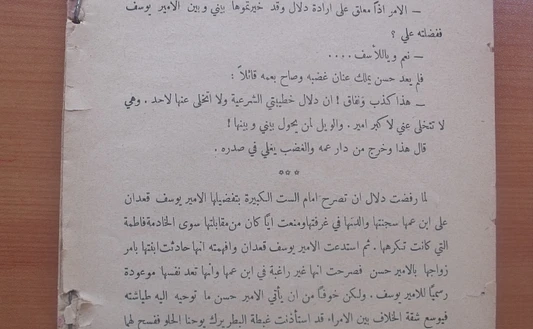 — الامر اذاً معلق على ارادة دلال وقد خيرتموها بيني وبين الامير يوسف
ففضلته علي ؟
— نعم وياللأسف ....
فلم يعد حسن يملك عنان غضبه وصاح بعمه قائلاً :
— هذا كذب ونفاق ! ان دلال خطيبتي الشرعية ولا اتخلى عنها لاحد . وهي
لا تتخلى عني لاكبر امير . والويل لمن يحول بيني وبينها !
قال هذا وخرج من دار عمه والغضب يغلي في صدره .
***
لما رفضت دلال ان تصرح امام الست الكبيرة بتفضيلها الامير يوسف قعدان
على ابن عمها سجنتها والدتها في غرفتها ومنعت ايًا كان من مقابلتها سوى الخادمة فاطمة
التي كانت تكرهها . ثم استدعت الامير يوسف قعدان وافهمته انها حادثت ابنتها بامر
زواجها بالامير حسن فصرحت انها غير راغبة في ابن عمها وانها تعد نفسها موعودة
رسميًا للامير يوسف . ولكن خوفًا من ان يأتي الامير حسن ما توحيه اليه طياشته
فيوسع شقة الخلاف بين الامراء قد استأذنت غبطة البطريرك يوحنا الحلو ففسح لهما